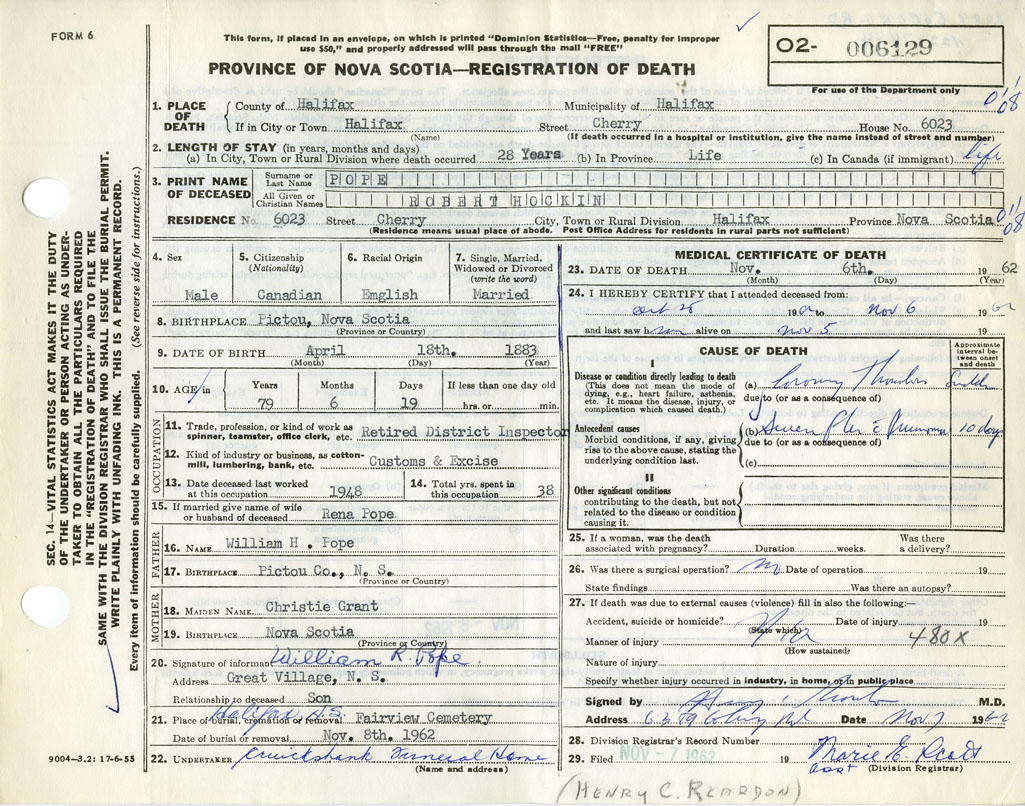 FORM 6
This form, if placed in an envelope, on which is printed "Dominion Statistics—Free, penalty for improper
use $50," and properly addressed will pass through the mail "FREE"
PROVINCE OF NOVA SCOTIA—REGISTRATION OF DEATH
O2- 006129
For use of the Department only
1. PLACE OF DEATH County of Halifax Municipality of Halifax
If in City or Town Halifax Street Cherry House No. 6023
(Name) (If death occurred in a hospital or institution, give the name instead of street and number)
2. LENGTH OF STAY (in years, months and days)
(a) In City, Town or Rural Division where death occurred 28 Years (b) In Province Life (c) In Canada (if immigrant) life
3. PRINT NAME OF DECEASED Surname or Last Name POPE
All Given or Christian Names ROBERT HOCKIN
RESIDENCE No. 6023 Street Cherry City, Town or Rural Division Halifax Province Nova Scotia
(Residence means usual place of abode. Post Office Address for residents in rural parts not sufficient)
4. Sex Male
5. Citizenship (Nationality) Canadian
6. Racial Origin Emglish
7. Single, Married, Widowed or Divorced (write the word) Married
8. BIRTHPLACE Pictou, Nova Scotia
(Province or Country)
9. DATE OF BIRTH April 18th. 1883
(Month) (Day) (Year)
10. AGE in Years 79 Months 6 Days 19 If less than one day old hrs. or min.
OCCUPATION
11. Trade, profession, or kind of work as spinner, teamster, office clerk, etc. Retired District Inspector
12. Kind of industry or business, as cotton-mill, lumbering, bank, etc. Customs & Excise
13. Date deceased last worked at this occupation 1948
14. Total yrs. spent in this occupation 38
15. If married give name of wife or husband of deceased Rena Pope
FATHER
16. NAME William H . Pope
17. BIRTHPLACE Pictou Co., N. S.
(Province or Country)
MOTHER
18. MAIDEN NAME Christie Grant
19. BIRTHPLACE Nova Scotia
(Province or Country)
20. Signature of informant William R. Pope.
Address Great Village, N. S.
Relationship to deceased Son
21. Place of burial, cremation or removal Halifax N.S. Fairview Cemetery
Date of burial or removal Nov. 8th. 1962
22. UNDERTAKER Cruickshank Funeral Home
(Name and address)
9004—3.2: 17-6-55
MEDICAL CERTIFICATE OF DEATH
23. DATE OF DEATH Nov. 6th. 1962
(Month) (Day) (Year)
24. I HEREBY CERTIFY that I attended deceased from:
Oct 28 1962 to Nov 6 1962
and last saw him alive on Nov 5 19
CAUSE OF DEATH
Approximate interval between onset and death
I
Disease or condition directly leading to death
(This does not mean the mode of dying, e.g., heart failure, asthenia, etc. It means the disease, injury, or complication which caused death.)
(a)
due to (or as a consequence of)
Antecedent causes
Morbid conditions, if any, giving rise to the above cause, stating the underlying condition last.
(b) Pneumonia 10 days
due to (or as a consequence of)
(c)
II
Other significant conditions
contributing to the death, but not related to the disease or condition causing it.
25. If a woman, was the death associated with pregnancy? Duration weeks. Was there a delivery?
26. Was there a surgical operation? no Date of operation 19
State findings Was there an autopsy?
27. If death was due to external causes (violence) fill in also the following:—
Accident, suicide or homicide? Date of injury 19
(State which)
Manner of injury 480X
(How sustained)
Nature of injury
Specify whether injury occurred in industry, in home, or in public place
Signed by M.D.
Address Date Nov 7 1962
28. Division Registrar's Record Number
29. Filed NOV - 7 1962 19
(Division Registrar)
(HENRY C. REARDON)
SEC. 14—VITAL STATISTICS ACT MAKES IT THE DUTY
OF THE UNDERTAKER OR PERSON ACTING AS UNDER-
TAKER TO OBTAIN ALL THE PARTICULARS REQUIRED
IN THE "REGISTRATION OF DEATH" AND TO FILE THE
SAME WITH THE DIVISION REGISTRAR WHO SHALL ISSUE THE BURIAL PERMIT.
WRITE PLAINLY WITH UNFADING INK. THIS IS A PERMANENT RECORD.
Every item of information should be carefully supplied. (See reverse side for instructions.)